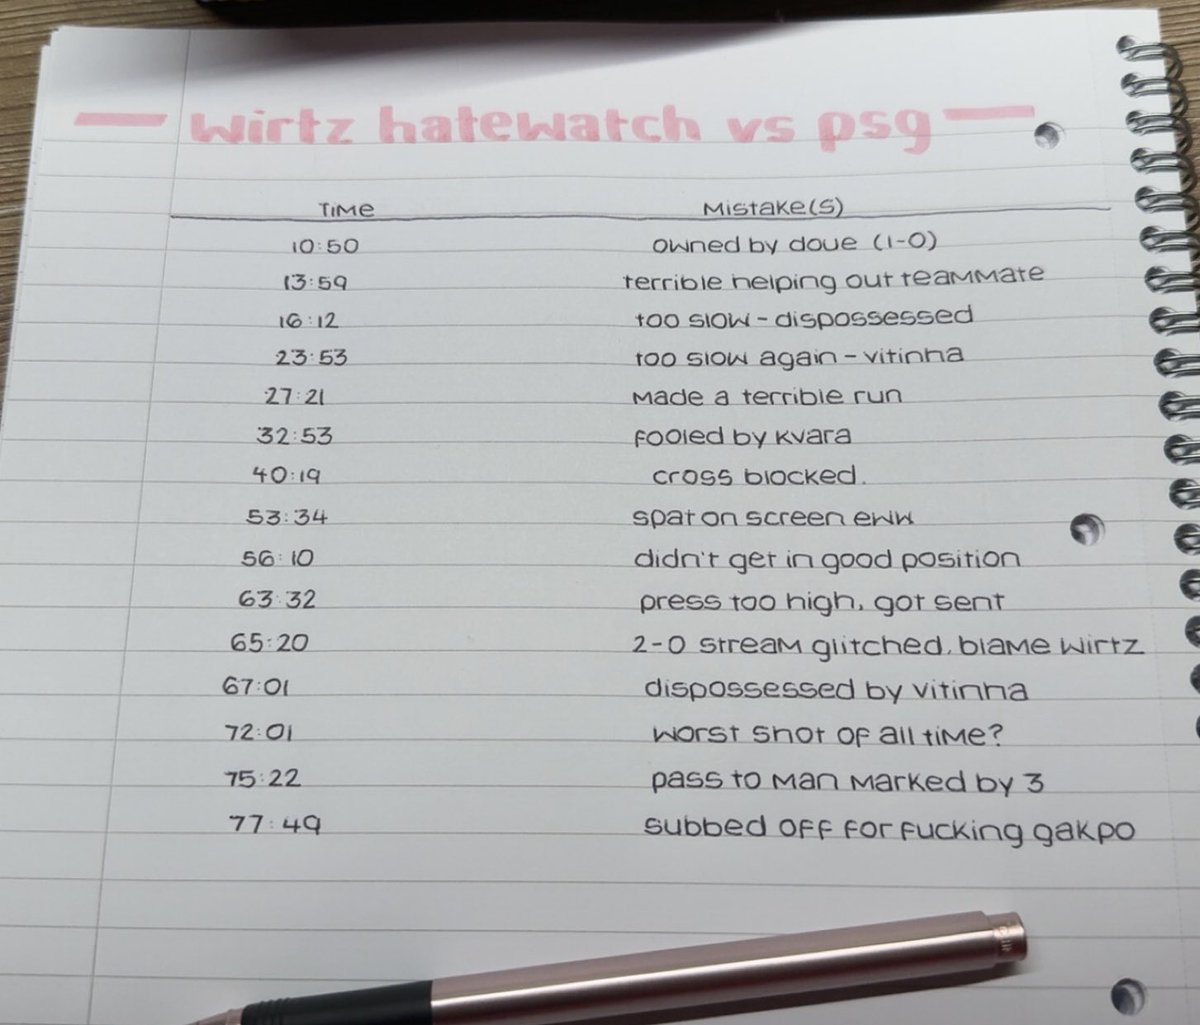 wirtz hatewatch vs psg
Time Mistake(s)
10:50 owned by doue (1-0)
13:59 terrible helping out teammate
16:12 too slow - dispossessed
23:53 too slow again - vitinha
27:21 made a terrible run
32:53 fooled by kvara
40:19 cross blocked.
53:34 spat on screen eww
56:10 didn't get in good position
63:32 press too high, got sent
65:20 2-0 stream glitched, blame wirtz
67:01 dispossessed by vitinha
72:01 worst shot of all time?
75:22 pass to man marked by 3
77:49 subbed off for fucking gakpo